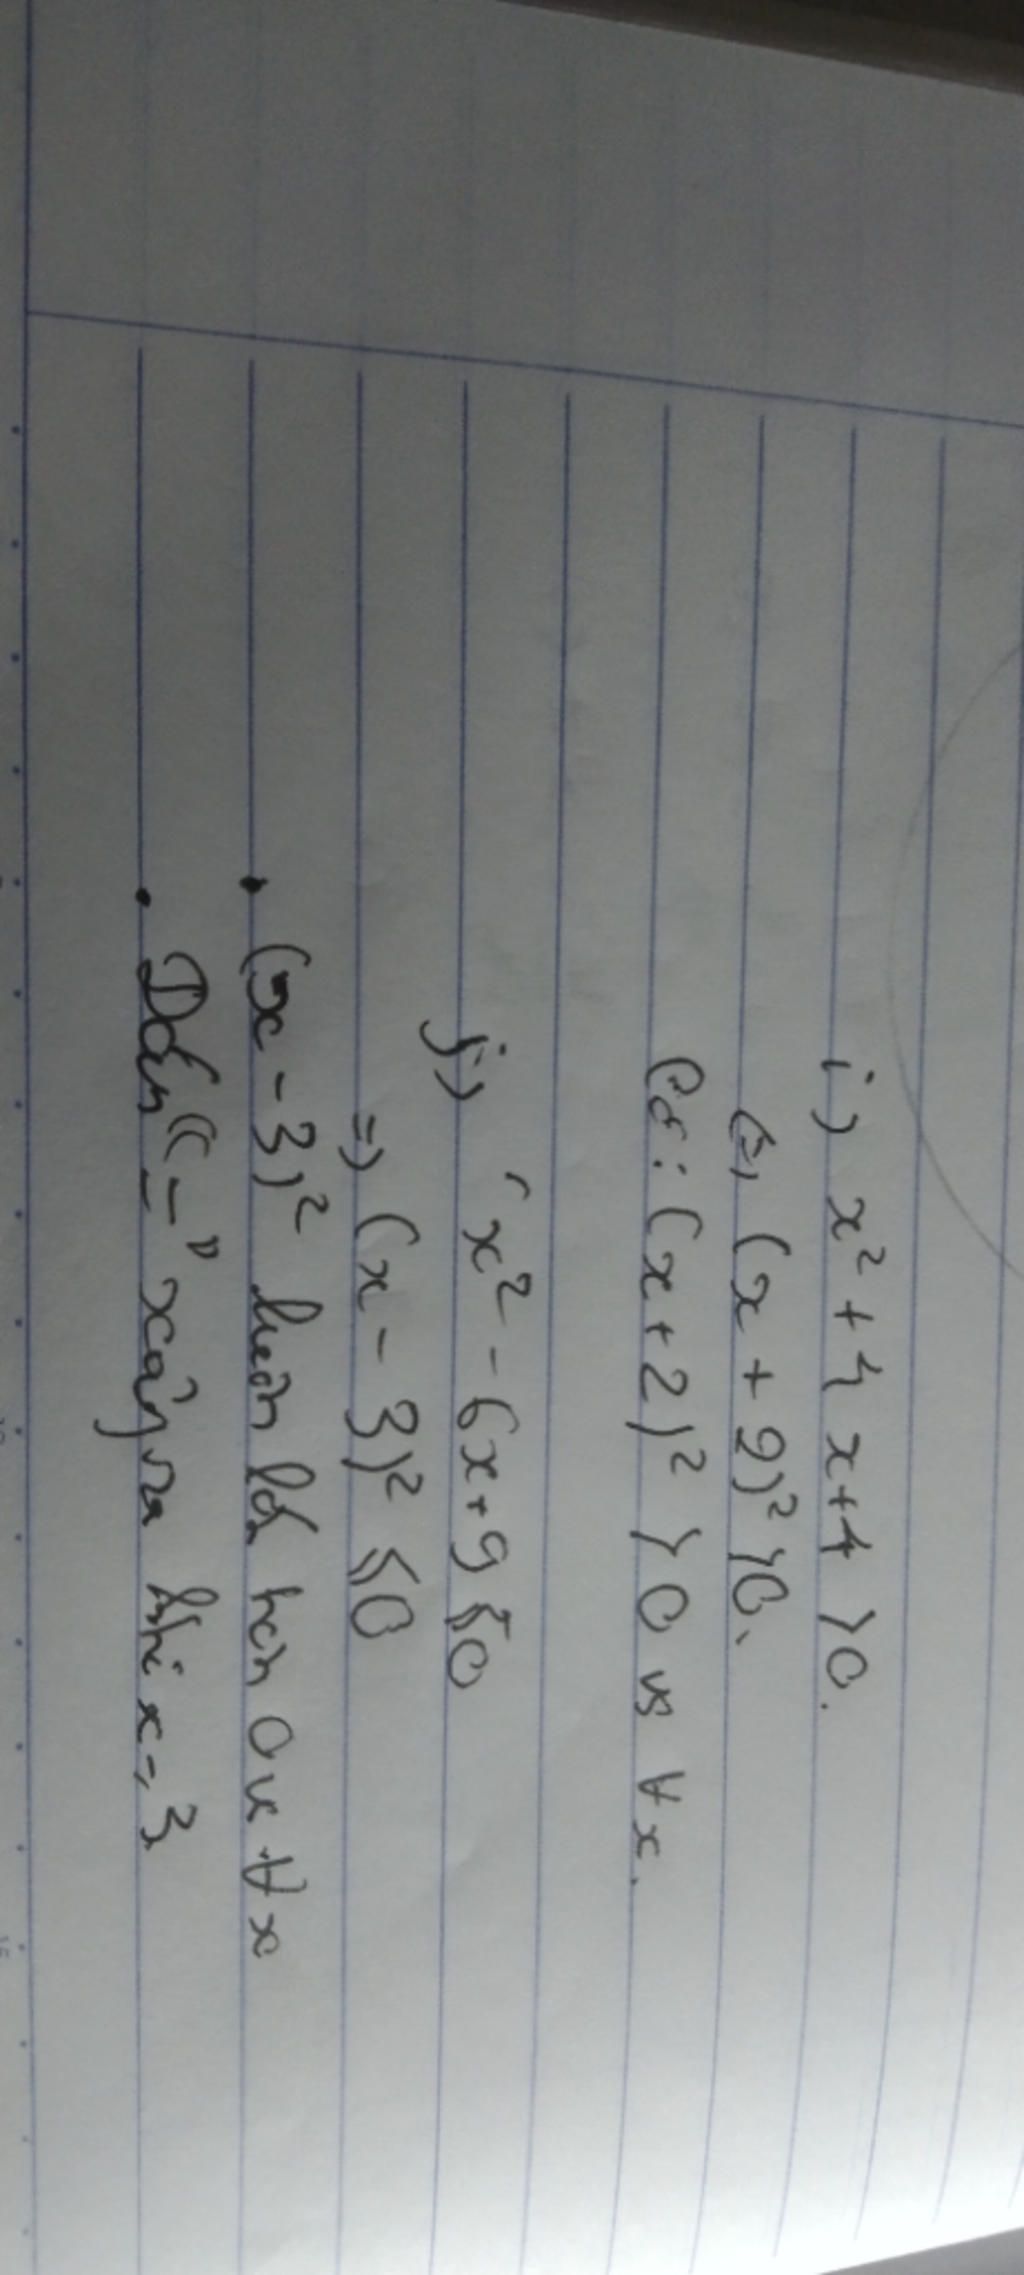 i) x² + 4x+4 >0.
(=) (x + 2)² >0.
Có : (x+2)² > 0 vs ∀x.
j) x² - 6x+9 ≤0
=) (x - 3)² ≤0
• (x - 3)² luôn lớ hơn 0 vs ∀x
• Dấu "=" xảy ra khi x=3